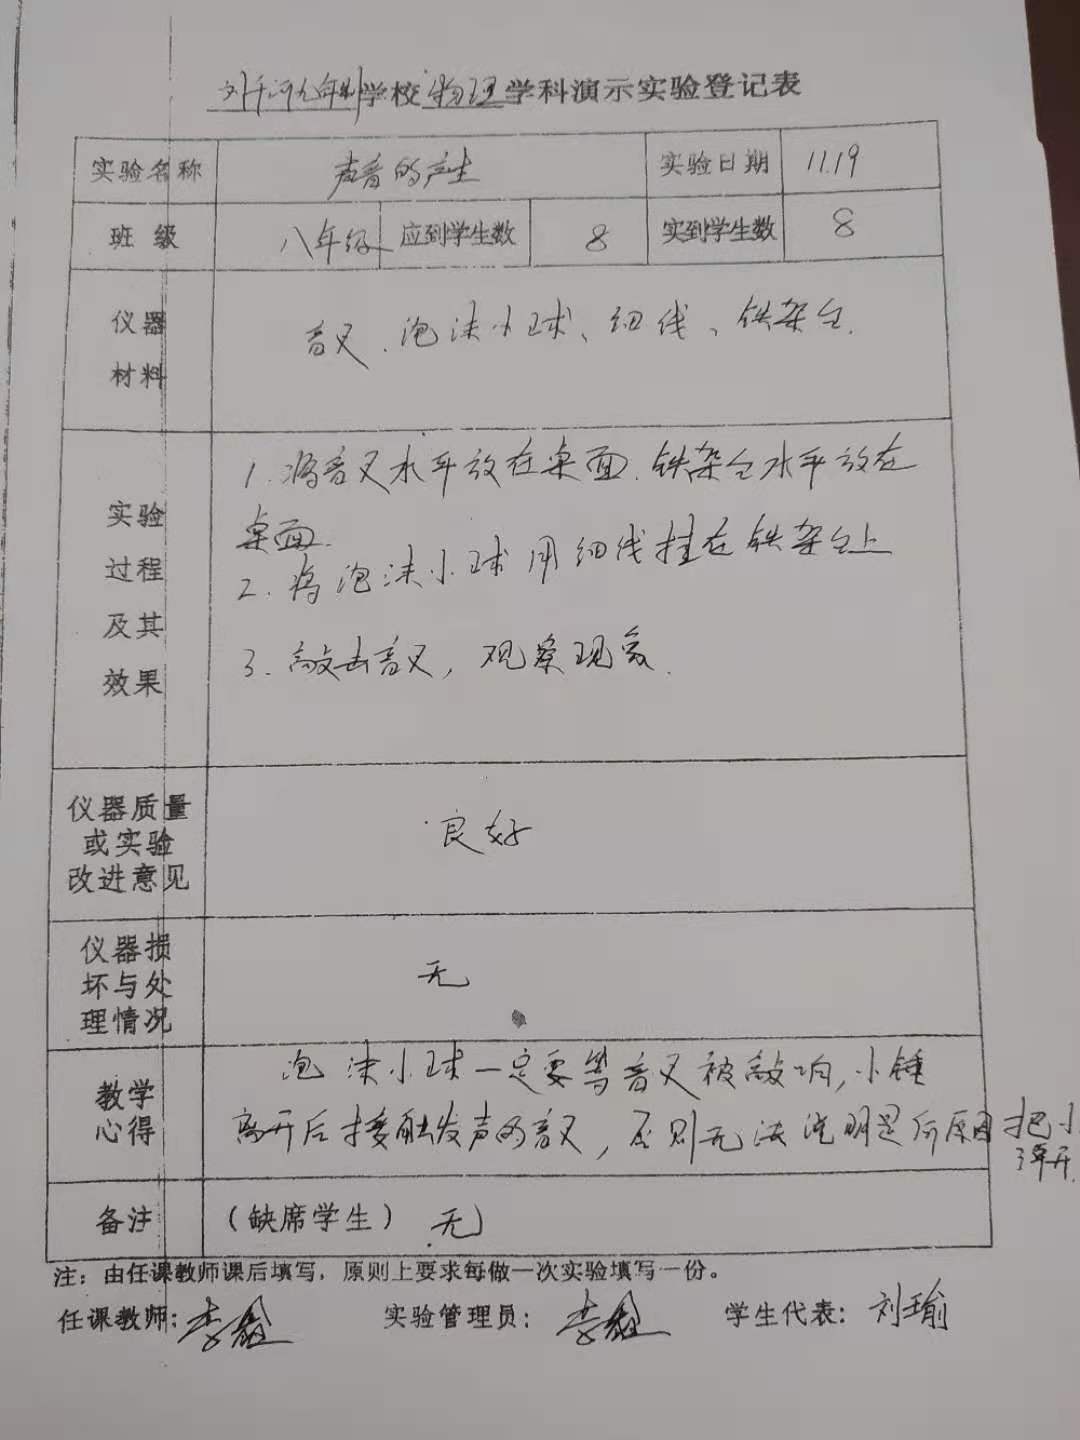 九年制学校 物理 学科演示实验登记表
实验名称 声音的产生 实验日期 11.19
班 级 八年级 应到学生数 8 实到学生数 8
仪器
材料
音叉、泡沫小球、细线、铁架台.
实验
过程
及其
效果
1.将音叉水平放在桌面.铁架台水平放在
桌面.
2.将泡沫小球用细线挂在铁架台上
3.敲击音叉,观察现象.
仪器质量
或实验
改进意见
良好
仪器损
坏与处
理情况
无
教学
心得
泡沫小球一定要等音叉被敲响,小锤
离开后接触发声的音叉,否则无法说明是何原因把小
弹开.
备注 (缺席学生) 无
注:由任课教师课后填写,原则上要求每做一次实验填写一份。
任课教师:李 实验管理员:李 学生代表:刘瑜